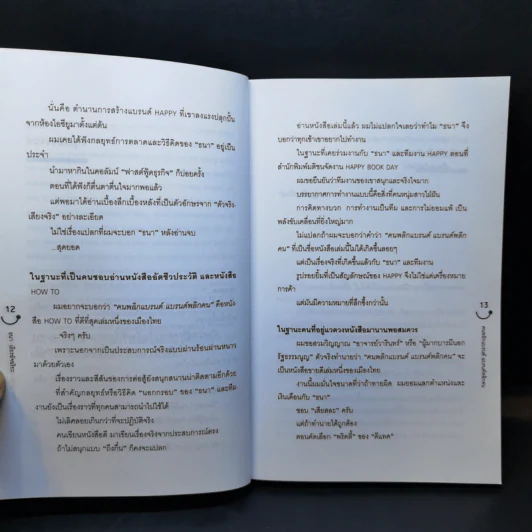 นั่นคือ ตำนานการสร้างแบรนด์ HAPPY ที่เขาลงแรงปลุกปั้น
จากห้องไอซียูมาตั้งแต่ต้น
ผมเคยได้ฟังกลยุทธ์การตลาดและวิธีคิดของ "ธนา" อยู่เป็น
ประจำ
นำมาหากินในคอลัมน์ "ฟาสต์ฟู้ดธุรกิจ" ก็บ่อยครั้ง
ตอนที่ได้ฟังก็ตื่นตาตื่นใจมากพอแล้ว
แต่พอมาได้อ่านเบื้องลึกเบื้องหลังที่เป็นตัวอักษรจาก "ตัวจริง-
เสียงจริง" อย่างละเอียด
ไม่ใช่เรื่องแปลกที่ผมจะบอก "ธนา" หลังอ่านจบ
...สุดยอด
ในฐานะที่เป็นคนชอบอ่านหนังสืออัตชีวประวัติ และหนังสือ
HOW TO
ผมอยากจะบอกว่า "คนพลิกแบรนด์ แบรนด์พลิกคน" คือหนัง
สือ HOW TO ที่ดีที่สุดเล่มหนึ่งของเมืองไทย
เพราะนอกจากเป็นประสบการณ์จริงแบบผ่านร้อนผ่านหนาว
มาด้วยตัวเอง
เรื่องราวและสีสันของการต่อสู้ยังสนุกสนานน่าติดตามอีกด้วย
ที่สำคัญกลยุทธ์หรือวิธีคิด "นอกกรอบ" ของ "ธนา" และทีม
งานยังเป็นเรื่องราวที่ทุกคนสามารถนำไปใช้ได้
ไม่เลิศลอยเกินกว่าที่จะปฏิบัติจริง
คนเขียนหนังสือดี มาเขียนเรื่องจริงจากประสบการณ์ตรง
ถ้าไม่สนุกแบบ "ถึงกึ๋น" ก็คงจะแปลก
12
ธนา เธียรอัจฉริยะ
อ่านหนังสือเล่มนี้แล้ว ผมไม่แปลกใจเลยว่าทำไม "ธนา" จึง
บอกว่าทุกเช้าเขาอยากไปทำงาน
ในฐานะที่เคยร่วมงานกับ "ธนา" และทีมงาน HAPPY ตอนที่
สำนักพิมพ์มติชนจัดงาน HAPPY BOOK DAY
ผมขอยืนยันว่าทีมงานของเขาสนุกและจริงใจมาก
บรรยากาศการทำงานแบบนี้คือสิ่งที่คนหนุ่มสาวไม้ฝัน
การคิดทางบวก การทำงานเป็นทีม และการไม่ยอมแพ้ เป็น
พลังขับเคลื่อนที่ยิ่งใหญ่มาก
ไม่แปลกถ้าผมจะบอกว่าคำว่า "คนพลิกแบรนด์ แบรนด์พลิก
คน" ที่เป็นชื่อหนังสือเล่มนี้ไม่ได้เกิดขึ้นลอยๆ
แต่เป็นเรื่องจริงที่เกิดขึ้นแล้วกับ "ธนา" และทีมงาน
รูปรอยยิ้มที่เป็นสัญลักษณ์ของ HAPPY จึงไม่ใช่แค่เครื่องหมาย
การค้า
แต่มันมีความหมายที่ลึกซึ้งกว่านั้น
ในฐานะคนที่อยู่แวดวงหนังสือมานานพอสมควร
ผมขอสวมวิญญาณ "อาจารย์วารินทร์" หรือ "ผู้มากบารมีนอก
รัฐธรรมนูญ" ตัวจริงทำนายว่า "คนพลิกแบรนด์ แบรนด์พลิกคน" จะ
เป็นหนังสือขายดีเล่มหนึ่งของเมืองไทย
งานนี้ผมมั่นใจขนาดที่ว่าถ้าทายผิด ผมยอมแลกตำแหน่งและ
เงินเดือนกับ "ธนา"
ชอบ "เสียสละ" ครับ
แต่ถ้าทำนายได้ถูกต้อง
ผมคงเลือก "พริตตี้" ของ "ดีแทค"
13
คนพลิกแบรนด์ แบรนด์พลิกคน